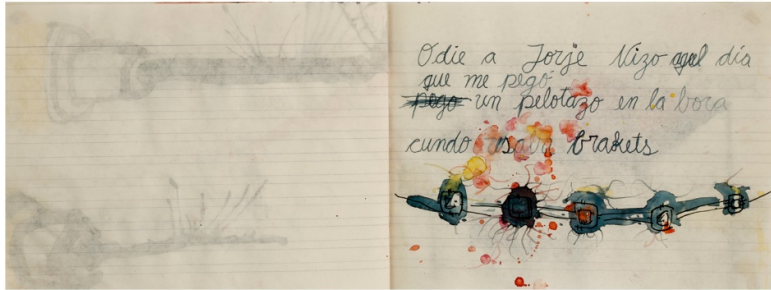 Odie a Jorje Nizo aquel día
que me pegó
pego un pelotazo en la boca
cundo usaba brakets